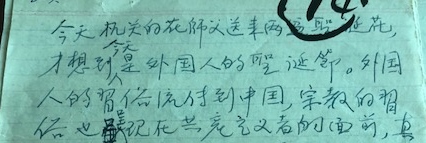 14
今天机关的花师父送来两盆聖诞花，
才想到今天是外国人的聖诞節。外国
人的習俗流传到中国，宗教的習
俗也呈现在共产主义者的面前，真